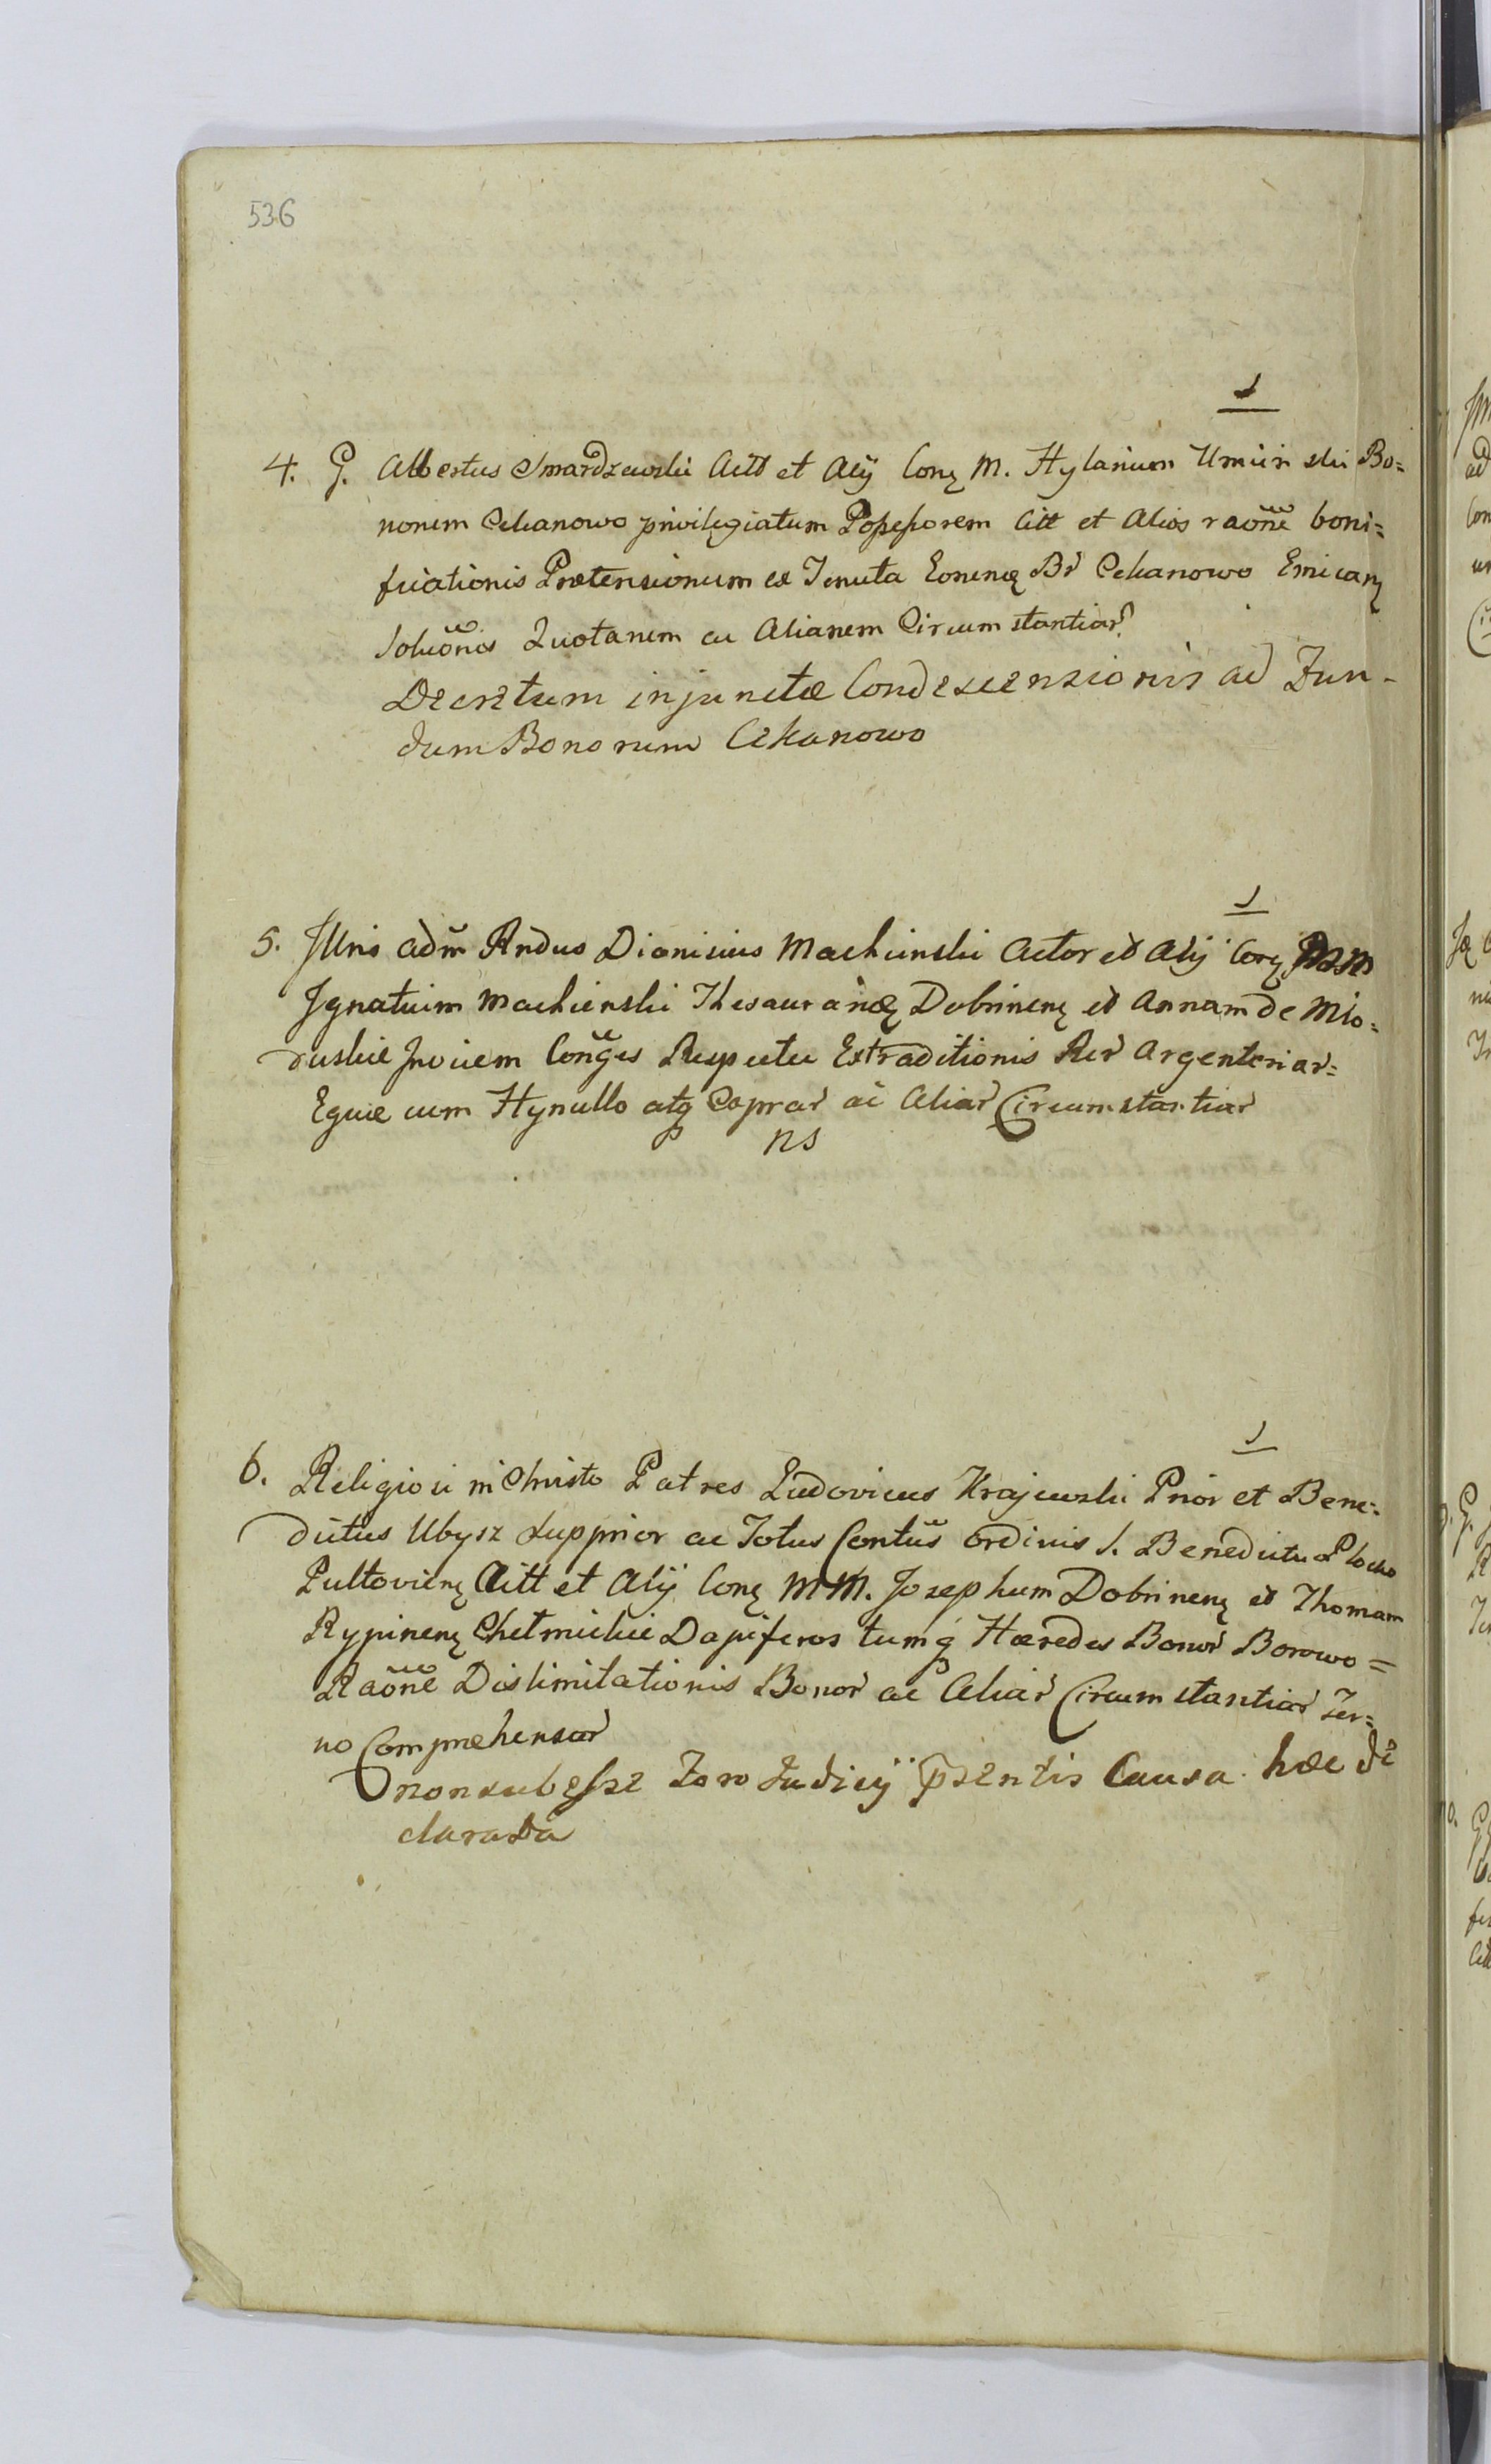 536
1
4. G. Albertus Smardzewski Actt et Alij Conę M. Hylarium Uminski Bo=
norum Cekanowo privilegiatum Possessorem Citt et Alios raone boni=
ficationis Prætensionum ex Tenuta Br Cekanowo
Soluonis Quotarum ac Aliarum Circumstantiar
Decretum injunctæ Condescensionis ad Fun-
dum Bonorum Cekanowo
1
5. Jllris adm Rndus Dionisius Machinski Actor et Alij Conę MM
Jgnatium Machinski Thesaur Dobrinenę et Annam de Mio=
duskie Jnvicem Conges Respectu Extraditionis Rer Argentériar=
Equæ cum Hynullo atq Caprar ac Aliar Circumstantiar
ns
1
6. Religiosi in Christo Patres Ludovicus Krajewski Prior et Bene=
dictus Ubysz Supprior ac Totus Contus Ordinis S. Benedicti Plocko
Pultovienę Actt et Alij Conę MM. Josephum Dobrinenę et Thomam
Rypinenę Chełmickie Dapiferos tumq Hæredes Bonor Borowo=
Raone Dislimitationis Bonor ac Aliar Circumstantiar Ter=
no Comprehensar
non subesse Foro Judicij psentis Causa hæc de
clarata